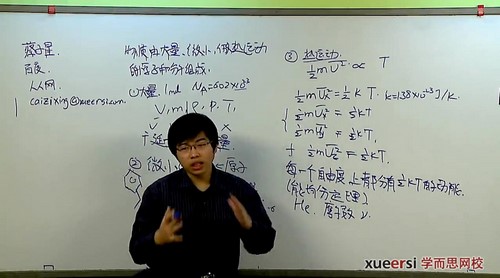 蔡子星
百度
人人网
caizixing@xueersi.com
物质由大量、微小、做热运动
的原子和分子组成.
①大量. 1mol N_A=6.02×10²³
V, m, P, ρ, T,
②微小
原子
③ 热运动
½mv̄² ∝ T
½mv̄ₓ² = ½kT. k=1.38×10⁻²³J/K.
½mv̄ₓ² = ½kT
½mv̄ᵧ² = ½kT.
+ ½mv̄_z² = ½kT
每一个自由度上都分有½kT的动能.
(能均分定理)
He. 原子数 ν.
xueersi 学而思网校